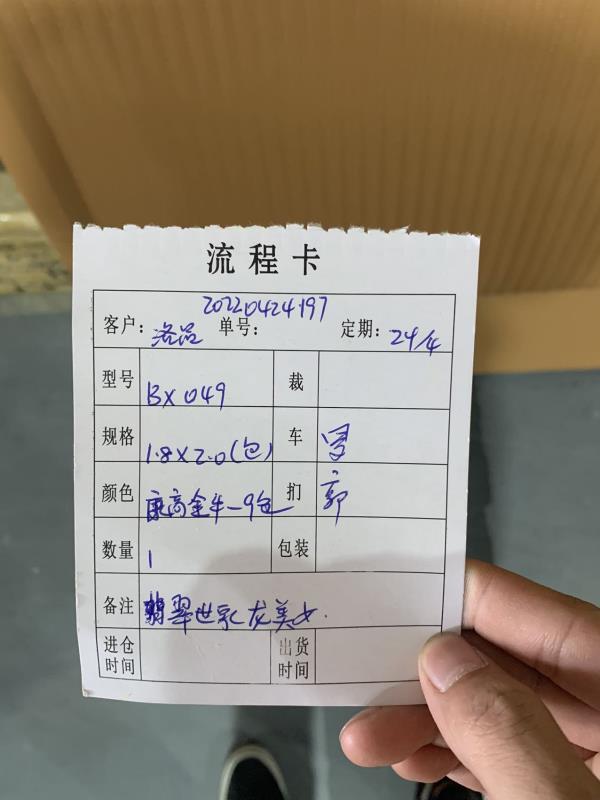 流程卡
20220424197
客户: 洛品 单号: 定期: 24/4
型号 BX 049 裁
规格 1.8×2.0(包) 车
颜色 康高金牛-9包 扪 郭
数量 1 包装
备注 翡翠世家 龙美女.
进仓时间 出货时间